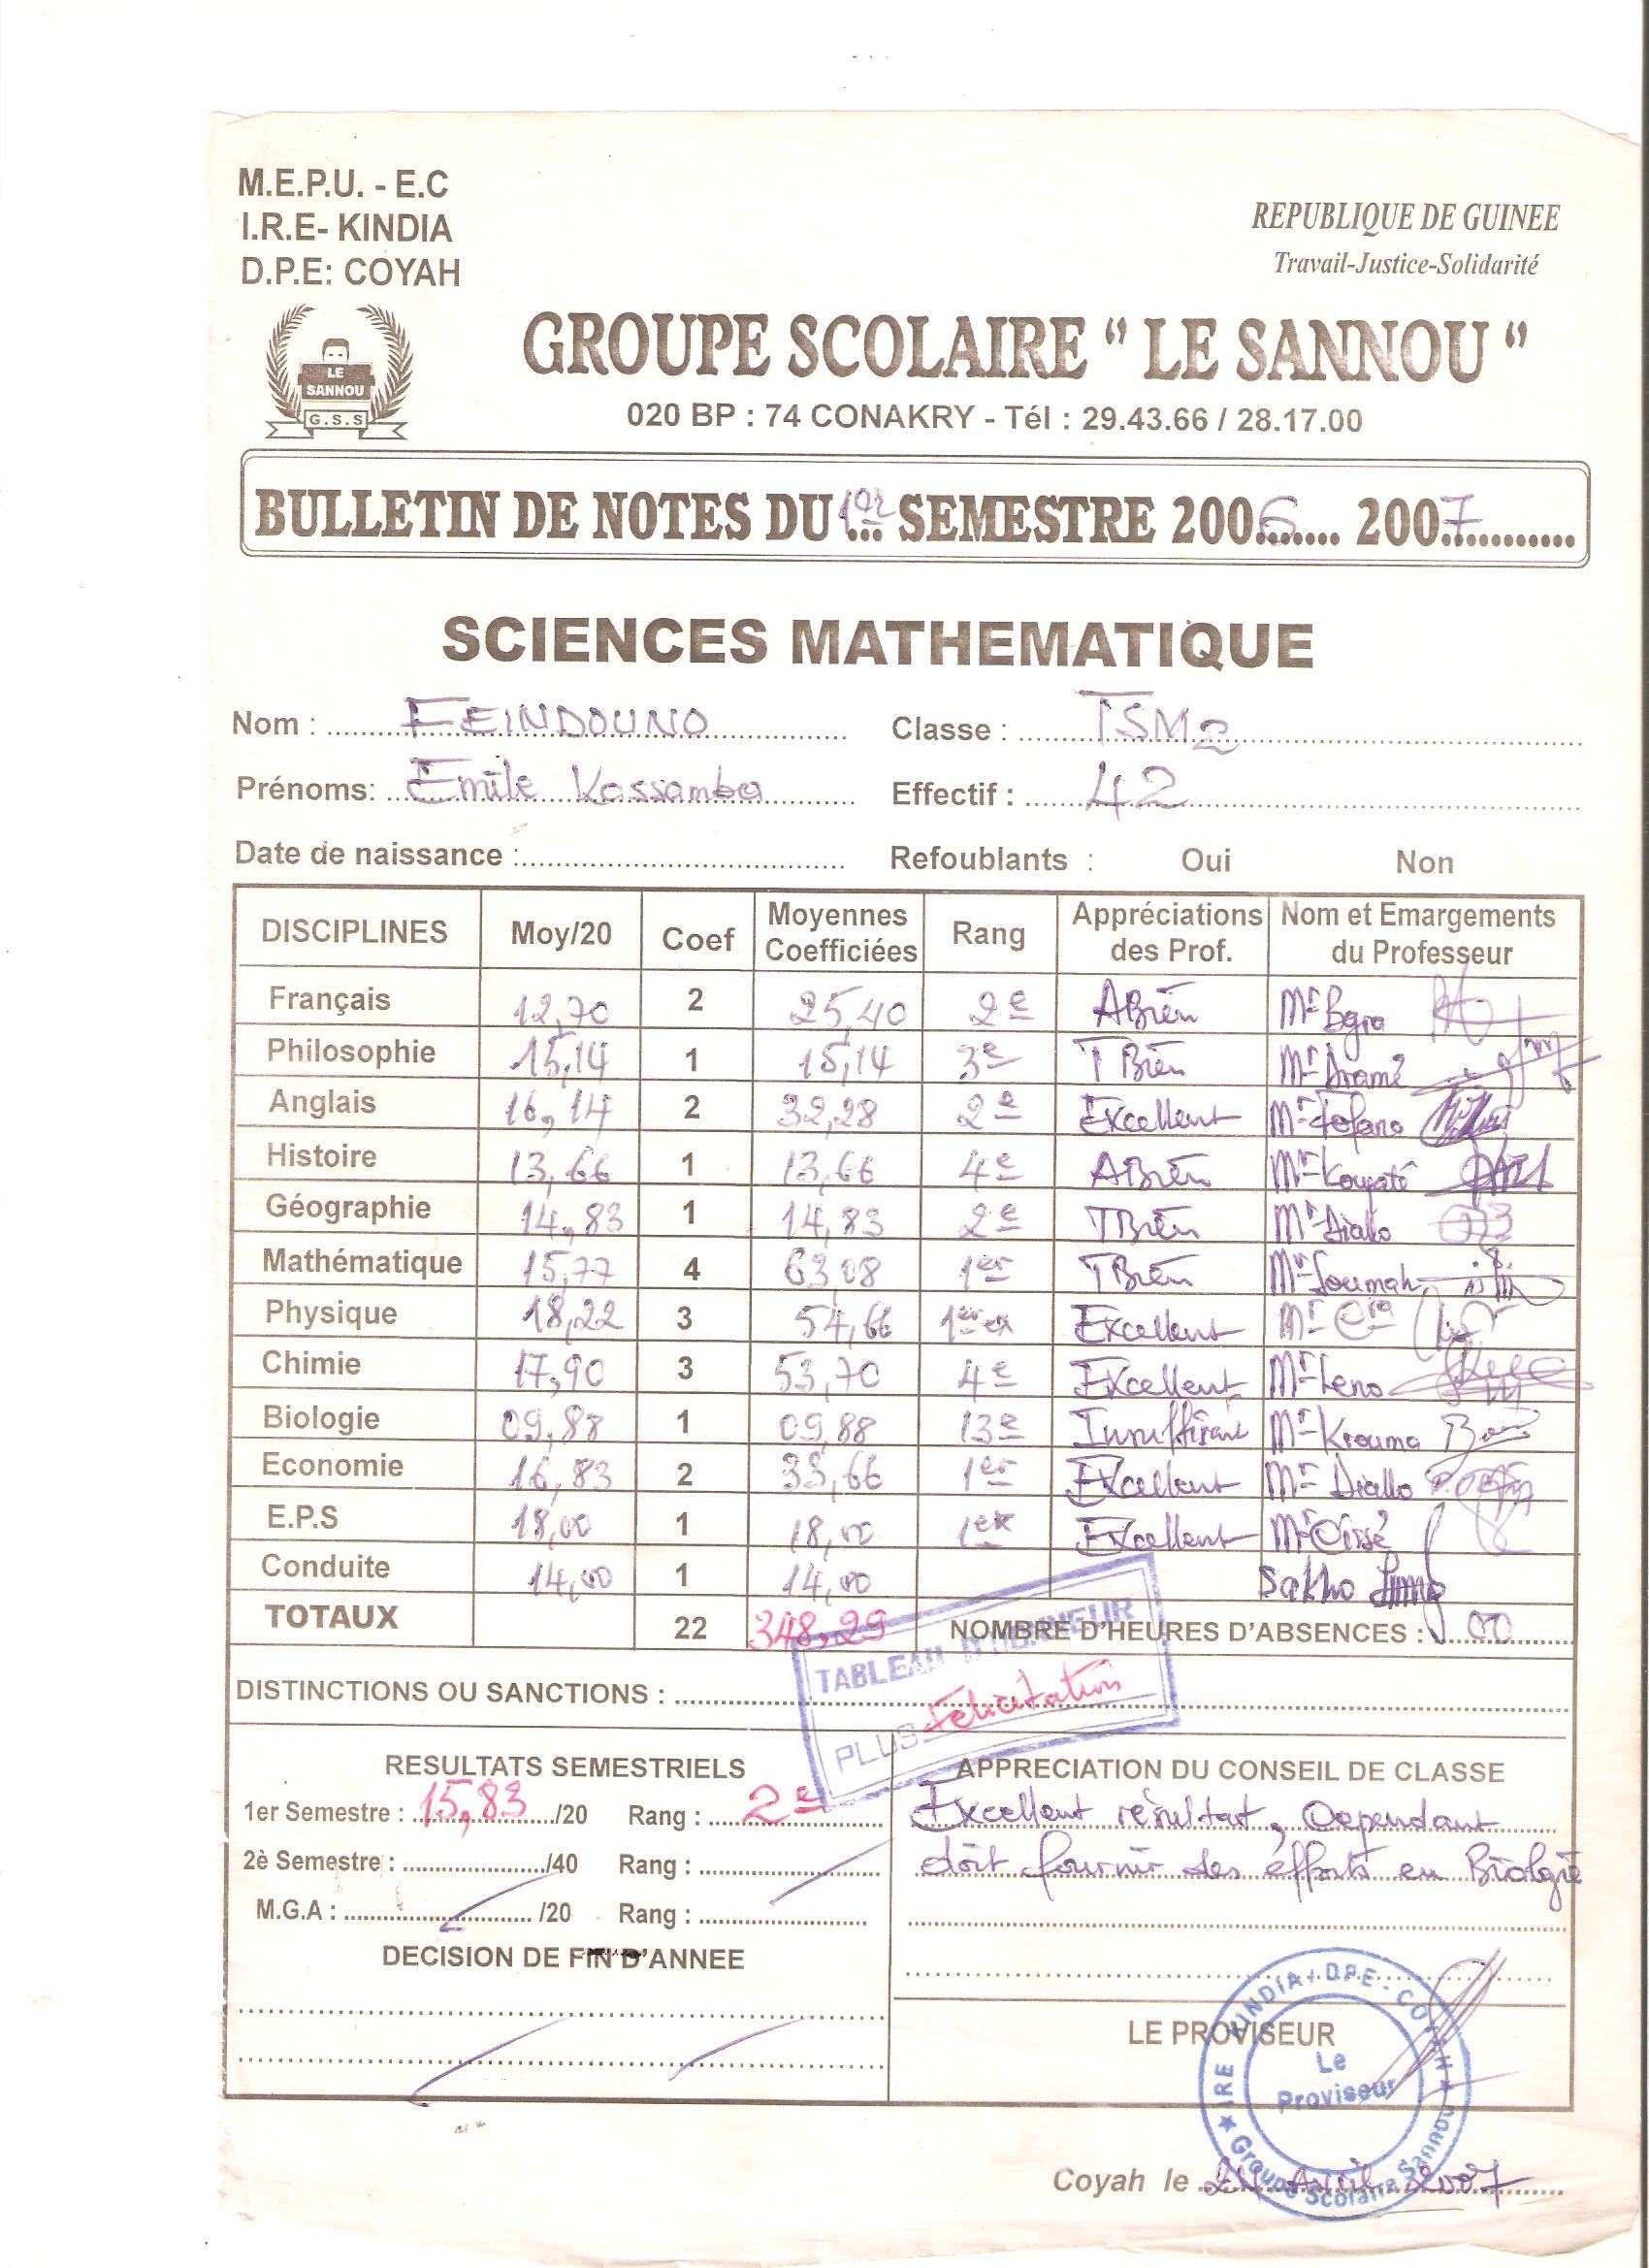 M.E.P.U. - E.C
I.R.E- KINDIA
D.P.E: COYAH
REPUBLIQUE DE GUINEE
Travail-Justice-Solidarité
LE SANNOU
G.S.S
GROUPE SCOLAIRE " LE SANNOU "
020 BP : 74 CONAKRY - Tél : 29.43.66 / 28.17.00
BULLETIN DE NOTES DU 1er SEMESTRE 2006 ... 2007
SCIENCES MATHEMATIQUE
Nom : FEINDOUNO Classe : TSM2
Prénoms: Emile Kossamba Effectif : 42
Date de naissance : Refoublants : Oui Non
DISCIPLINES Moy/20 Coef Moyennes Coefficiées Rang Appréciations des Prof. Nom et Emargements du Professeur
Français 12,70 2 25,40 2e ABien Mr
Philosophie 15,14 1 15,14 3e TBien Mr Dramé
Anglais 16,14 2 32,28 2e Excellent Mr Fofana
Histoire 13,66 1 13,66 4e ABien Mr Kouyaté
Géographie 14,83 1 14,83 2e TBien Mr Diallo
Mathématique 15,77 4 63,08 1er TBien Mr Soumah
Physique 18,22 3 54,66 1er ex Excellent Mr
Chimie 17,90 3 53,70 4e Excellent Mr Leno
Biologie 09,88 1 09,88 13e Insuffisant Mr Krouma
Economie 16,83 2 33,66 1er Excellent Mr Diallo
E.P.S 18,00 1 18,00 1ex Excellent Mr Cissé
Conduite 14,00 1 14,00 Sakho
TOTAUX 22 348,29 NOMBRE D'HEURES D'ABSENCES : 00
TABLEAU D'HONNEUR
PLUS Félicitation
DISTINCTIONS OU SANCTIONS :
RESULTATS SEMESTRIELS
1er Semestre : 15,83 /20 Rang : 2e
2è Semestre : /40 Rang :
M.G.A : /20 Rang :
DECISION DE FIN D'ANNEE
APPRECIATION DU CONSEIL DE CLASSE
Excellent résultat, Cependant
doit fournir des efforts en Biologie
LE PROVISEUR
IRE KINDIA - D.P.E - COYAH
Le Proviseur
Groupe Scolaire Sannou
Coyah le 24 Avril 2007